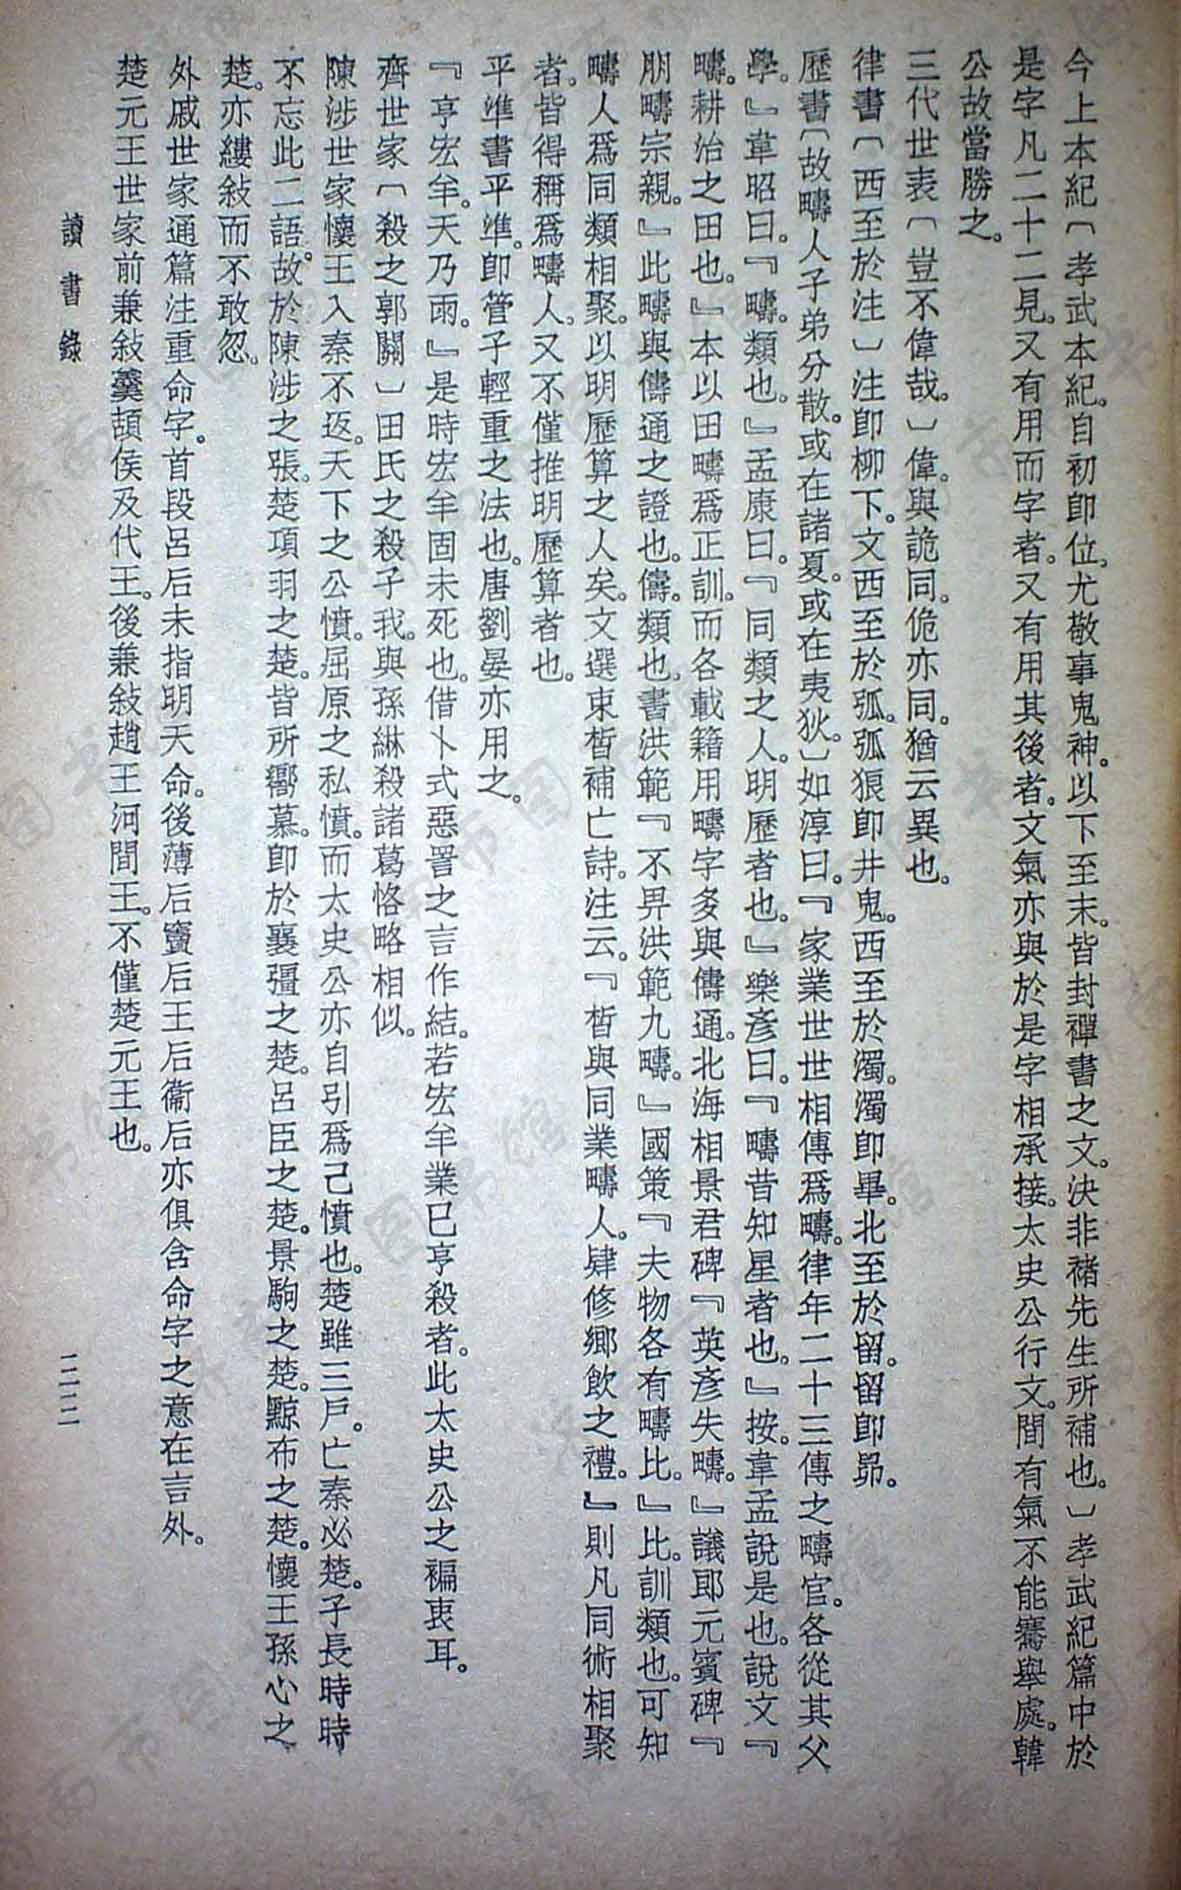 今上本紀〔孝武本紀。自初卽位。尤敬事鬼神。以下至末。皆封禪書之文。決非褚先生所補也。〕孝武紀篇中於
是字凡二十二見。又有用而字者。又有用其後者。文氣亦與於是字相承接。太史公行文。間有氣不能騫舉處。韓
公故當勝之。
三代世表〔豈不偉哉。〕偉。與詭同。佹亦同。猶云異也。
律書〔西至於注〕注卽柳下。文西至於弧。弧狼卽井鬼。西至於濁。濁卽畢。北至於留。留卽昴。
歷書〔故疇人子弟分散。或在諸夏。或在夷狄。〕如淳曰。『家業世世相傳爲疇。律年二十三傳之疇官。各從其父
學。』韋昭曰。『疇。類也。』孟康曰。『同類之人。明歷者也。』樂彥曰。『疇昔知星者也。』按。韋孟說是也。說文『
疇。耕治之田也。』本以田疇爲正訓。而各載籍用疇字多與儔通。北海相景君碑『英彥失疇。』議郎元賓碑『
朋疇宗親。』此疇與儔通之證也。儔。類也。書洪範『不畀洪範九疇。』國策『夫物各有疇比。』比。訓類也。可知
疇人爲同類相聚。以明歷算之人矣。文選束晳補亡詩。注云。『晳與同業疇人。肄修鄉飲之禮。』則凡同術相聚
者。皆得稱爲疇人。又不僅推明歷算者也。
平準書平準。卽管子輕重之法也。唐劉晏亦用之。
『亨宏羊。天乃雨。』是時宏羊固未死也。借卜式惡詈之言作結。若宏羊業已亨殺者。此太史公之褊衷耳。
齊世家〔殺之郭關〕田氏之殺子我。與孫綝殺諸葛恪略相似。
陳涉世家懷王入秦不返。天下之公憤。屈原之私憤。而太史公亦自引爲己憤也。楚雖三戶。亡秦必楚。子長時時
不忘此二語。故於陳涉之張。楚項羽之楚。皆所嚮慕。卽於襄彊之楚。呂臣之楚。景駒之楚。黥布之楚。懷王孫心之
楚。亦縷敍而不敢忽。
外戚世家通篇注重命字。首段呂后未指明天命。後薄后竇后王后衞后亦俱含命字之意在言外。
楚元王世家前兼敍羹頡侯及代王。後兼敍趙王河間王。不僅楚元王也。
讀書錄
三三